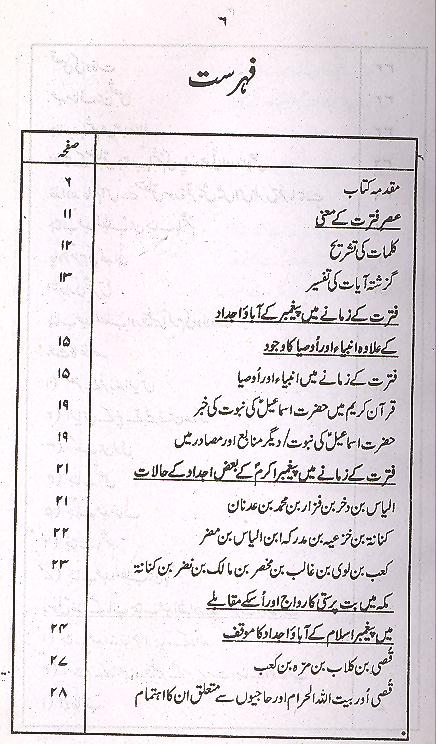 ٦
فہرست
صفحہ
مقدمہ کتاب ٦
عصر فترت کے معنی ١١
کلمات کی تشریح ١٢
گزشتہ آیات کی تفسیر ١٣
فترت کے زمانے میں پیغمبر کے آباؤ اجداد
کے علاوہ انبیاء اور أوصیا کا وجود ١٥
فترت کے زمانے میں انبیاء اور أوصیا ١٥
قرآن کریم میں حضرت اسماعیلؑ کی نبوت کی خبر ١٩
حضرت اسماعیلؑ کی نبوت/ دیگر منابع اور مصادر میں ١٩
فترت کے زمانے میں پیغمبر اکرمؐ کے بعض اجداد کے حالات ٢١
الیاس بن دخر بن فزار بن محمد بن عدنان ٢١
کنانۃ بن خزعیہ بن مدرکہ ابن الیاس بن مضر ٢٢
کعب بن لوی بن غالب بن مخصر بن مالک بن نضر بن کنانۃ ٢٣
مکہ میں بت پرستی کا رواج اور اُسکے مقابلے
میں پیغمبر اسلام کے آباؤ اجداد کا موقف ٢٤
قُصی بن کلاب بن مرّہ بن کعب ٢٧
قُصی اور بیت اللہ الحرام اور حاجیوں سے متعلق ان کا اہتمام ٢٨